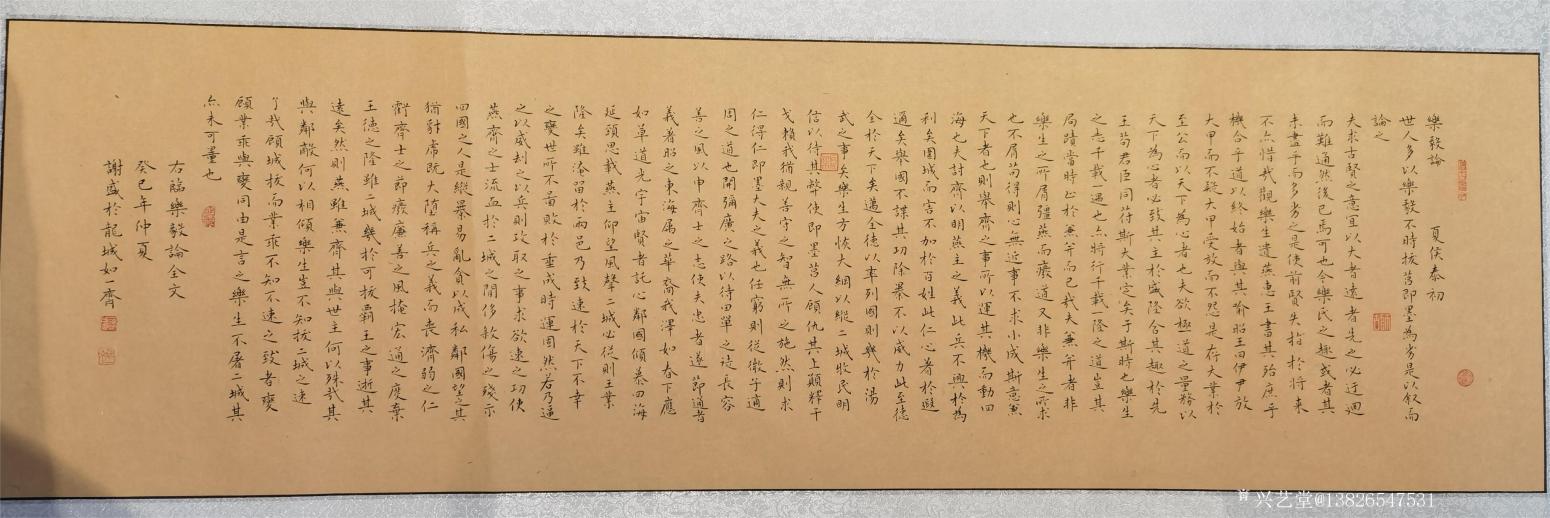 樂毅論　夏侯泰初
世人多以樂毅不時拔莒即墨為劣是以叙而
論之
夫求古賢之意宜以大者遠者先之必迂迴
而難通然後已焉可也今樂氏之趣或者其
未盡乎而多劣之是使前賢失指於將來
不亦惜哉觀樂生遺燕惠王書其殆庶乎
機合乎道以終始者與其喻昭王曰伊尹放
大甲而不疑大甲受放而不怨是存大業於
至公而以天下為心者也夫欲極道之量務以
天下為心者必致其主於盛隆合其趣於先
王苟君臣同符斯大業定矣于斯時也樂生
之志千載一遇也亦將行千載一隆之道豈其
局蹟當時止於兼并而已哉夫兼并者非
樂生之所屑彊燕而廢道又非樂生之所求
也不屑苟得則心無近事不求小成斯意兼
天下者也則舉齊之事所以運其機而動四
海也夫討齊以明燕主之義此兵不興於為
利矣圍城而害不加於百姓此仁心著於遐
邇矣舉國不謀其功除暴不以威力此至德
全於天下矣邁全德以率列國則幾於湯
武之事矣樂生方恢大綱以縱二城牧民明
信以待其弊使即墨莒人顧仇其上願釋干
戈賴我猶親善守之智無所之施然則求
仁得仁即墨大夫之義也任窮則從微子適
周之道也開彌廣之路以待田單之徒長容
善之風以申齊士之志使夫忠者遂節通者
義著昭之東海属之華裔我澤如春下應
如草道光宇宙賢者託心鄰國傾慕四海
延頸思戴燕主仰望風聲二城必從則王業
隆矣雖淹留於兩邑乃致速於天下不幸
之變世所不圖敗於垂成時運固然若乃逼
之以威刦之以兵則攻取之事求欲速之功使
燕齊之士流血於二城之間侈敘傷之殘示
四國之人是縱暴易亂貪以成私鄰國望之其
猶豺虎既大堕稱兵之義而喪濟弱之仁
虧齊士之節癈廉善之風掩宏通之度棄
王德之隆雖二城幾於可拔霸王之事逝其
遠矣然則燕雖兼齊其與世主何以殊哉其
與鄰敵何以相傾樂生豈不知拔二城之速
了哉顧城拔而業乖不知不速之致者變
顧業乖與變同由是言之樂生不屠二城其
亦未可量也
右臨樂毅論全文
癸巳年仲夏
謝盛於龍城如一齋
兴艺堂@13826547531